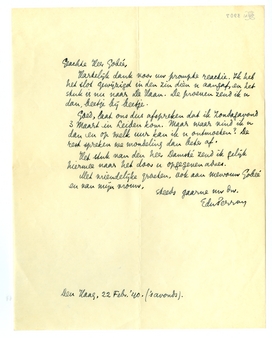 Geachte Heer Godée,
Hartelijk dank voor uw prompte reactie. Ik heb
het slot gewijzigd in den zin dien u aangaf, en het
stuk is nu naar De Haan. De proeven zend ik u
dan, beetje bij beetje.
Goed, laat ons dus afspreken dat ik Zondagavond
3 Maart in Leiden kom. Maar waar vind ik u
dan en op welk uur kan ik u ontmoeten? De
rest spreken we mondeling dan beter af.
Het stuk van den heer Damsté zend ik gelijk
hiermee naar het door u opgegeven adres.
Met vriendelijke groeten, ook aan mevrouw Godée
en van mijn vrouw,
steeds gaarne uw dw.
EduPerron
Den Haag, 22 Febr. '40. ('s avonds).